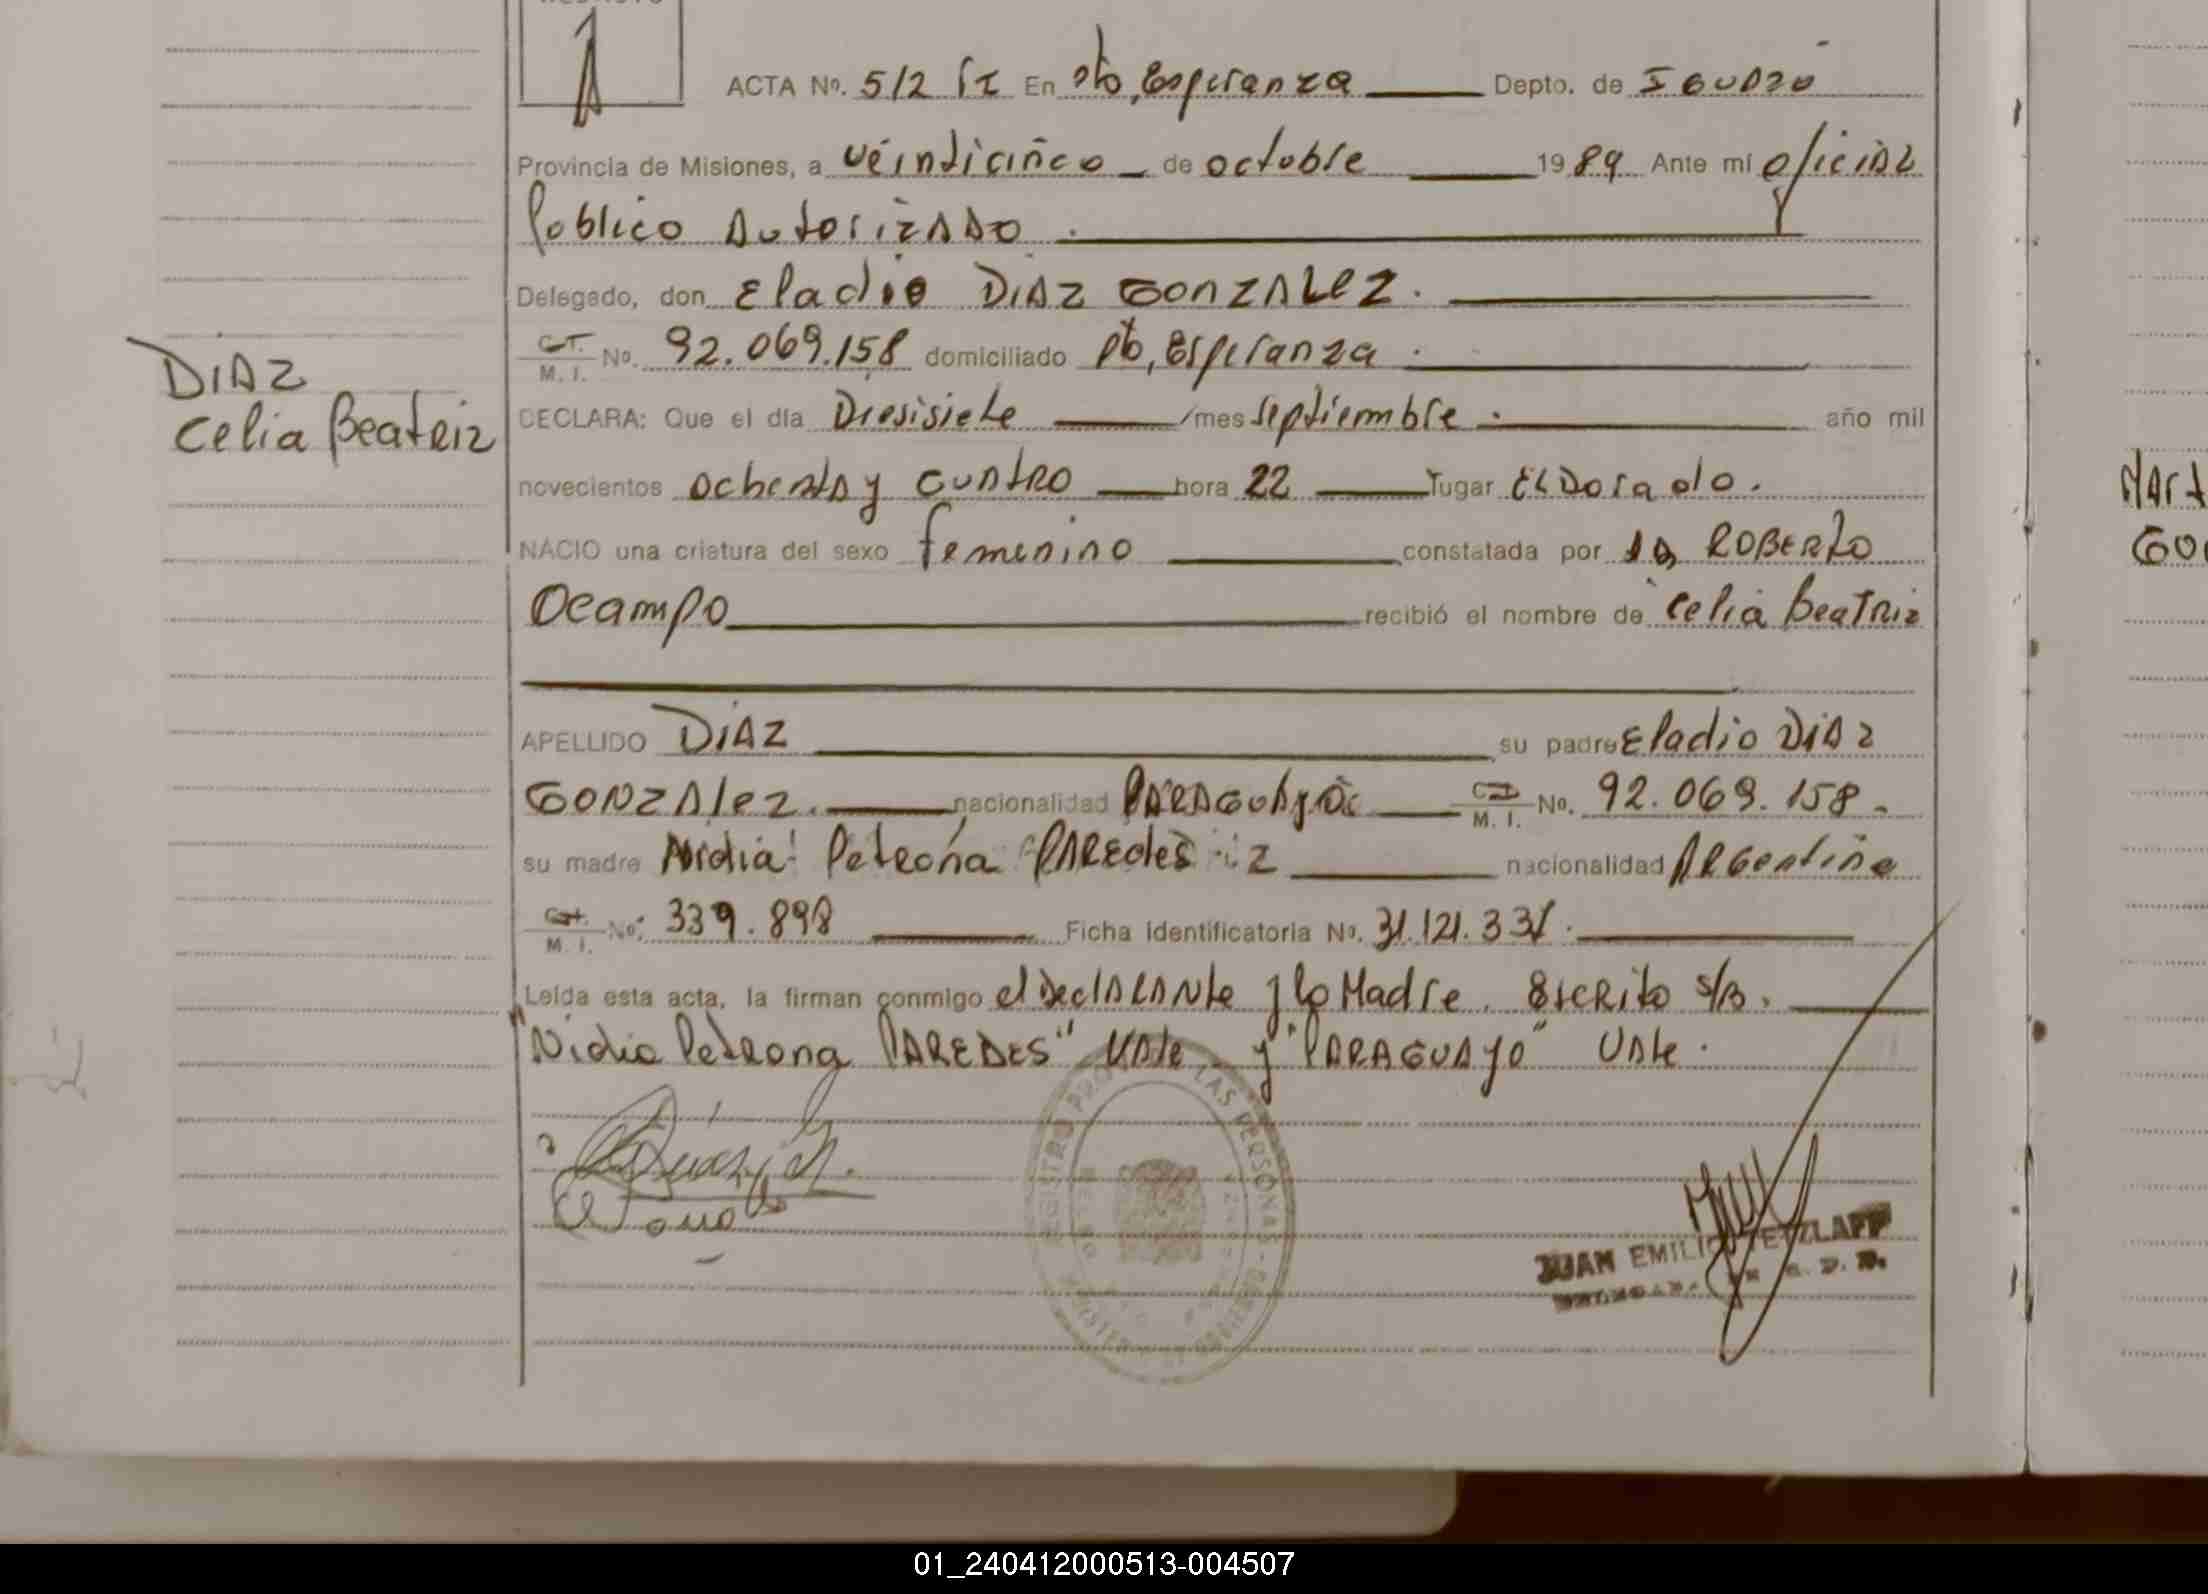 ACTA No. 512 En Pto, Esperanza Depto. de IGUAZÚ
Provincia de Misiones, a veinticinco de octubre 1989 Ante mí oficial
Público Autorizado.
Delegado, don Eladio DIAZ GONZALEZ.
M. I. No. 92.069.158 domiciliado Pto, Esperanza.
DIAZ
Celia Beatriz
DECLARA: Que el día Diesisiete /mes septiembre. año mil
novecientos ochenta y cuatro hora 22 lugar ELDorado.
NACIO una criatura del sexo femenino constatada por ROBERTO
Ocampo recibió el nombre de Celia Beatriz
APELLIDO DIAZ su padre Eladio DIAZ
GONZALEZ. nacionalidad PARAGUAYO M. I. No. 92.069.158.
su madre Nidia Petrona PAREdes nacionalidad ARGentina
M. I. No. 339.898 Ficha identificatoria No. 31.121.331.
Leída esta acta, la firman conmigo el DeclARANte y la Madre. EscRito s/B.
"Nidia PetRona PAREDES" VAle y "PARAGUAYO" VAle.
REGISTRO LAS PERSONAS
JUAN EMILIO TETZLAFF
MART
GO
01_240412000513-004507